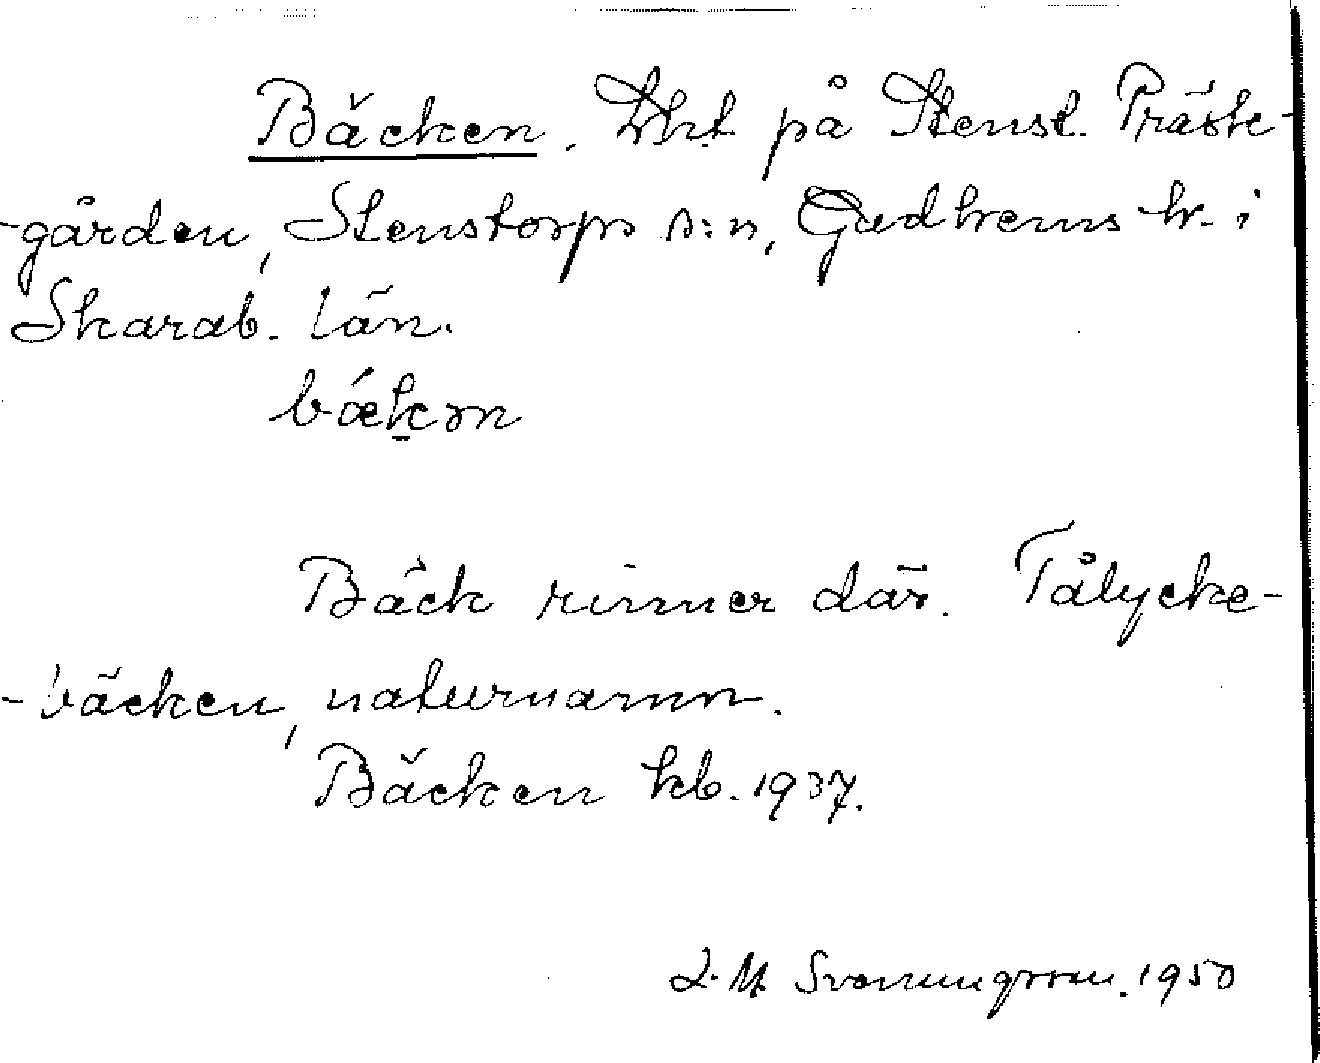 Bäcken. Tht på Stenst. Präste-
-gården, Stenstorps s:n, Gudhems hr. i
Skarab. län.
bækən
Bäck rinner där. Tålycke-
-bäcken, naturnamn.
Bäcken kb. 1937.
I. M. 1950